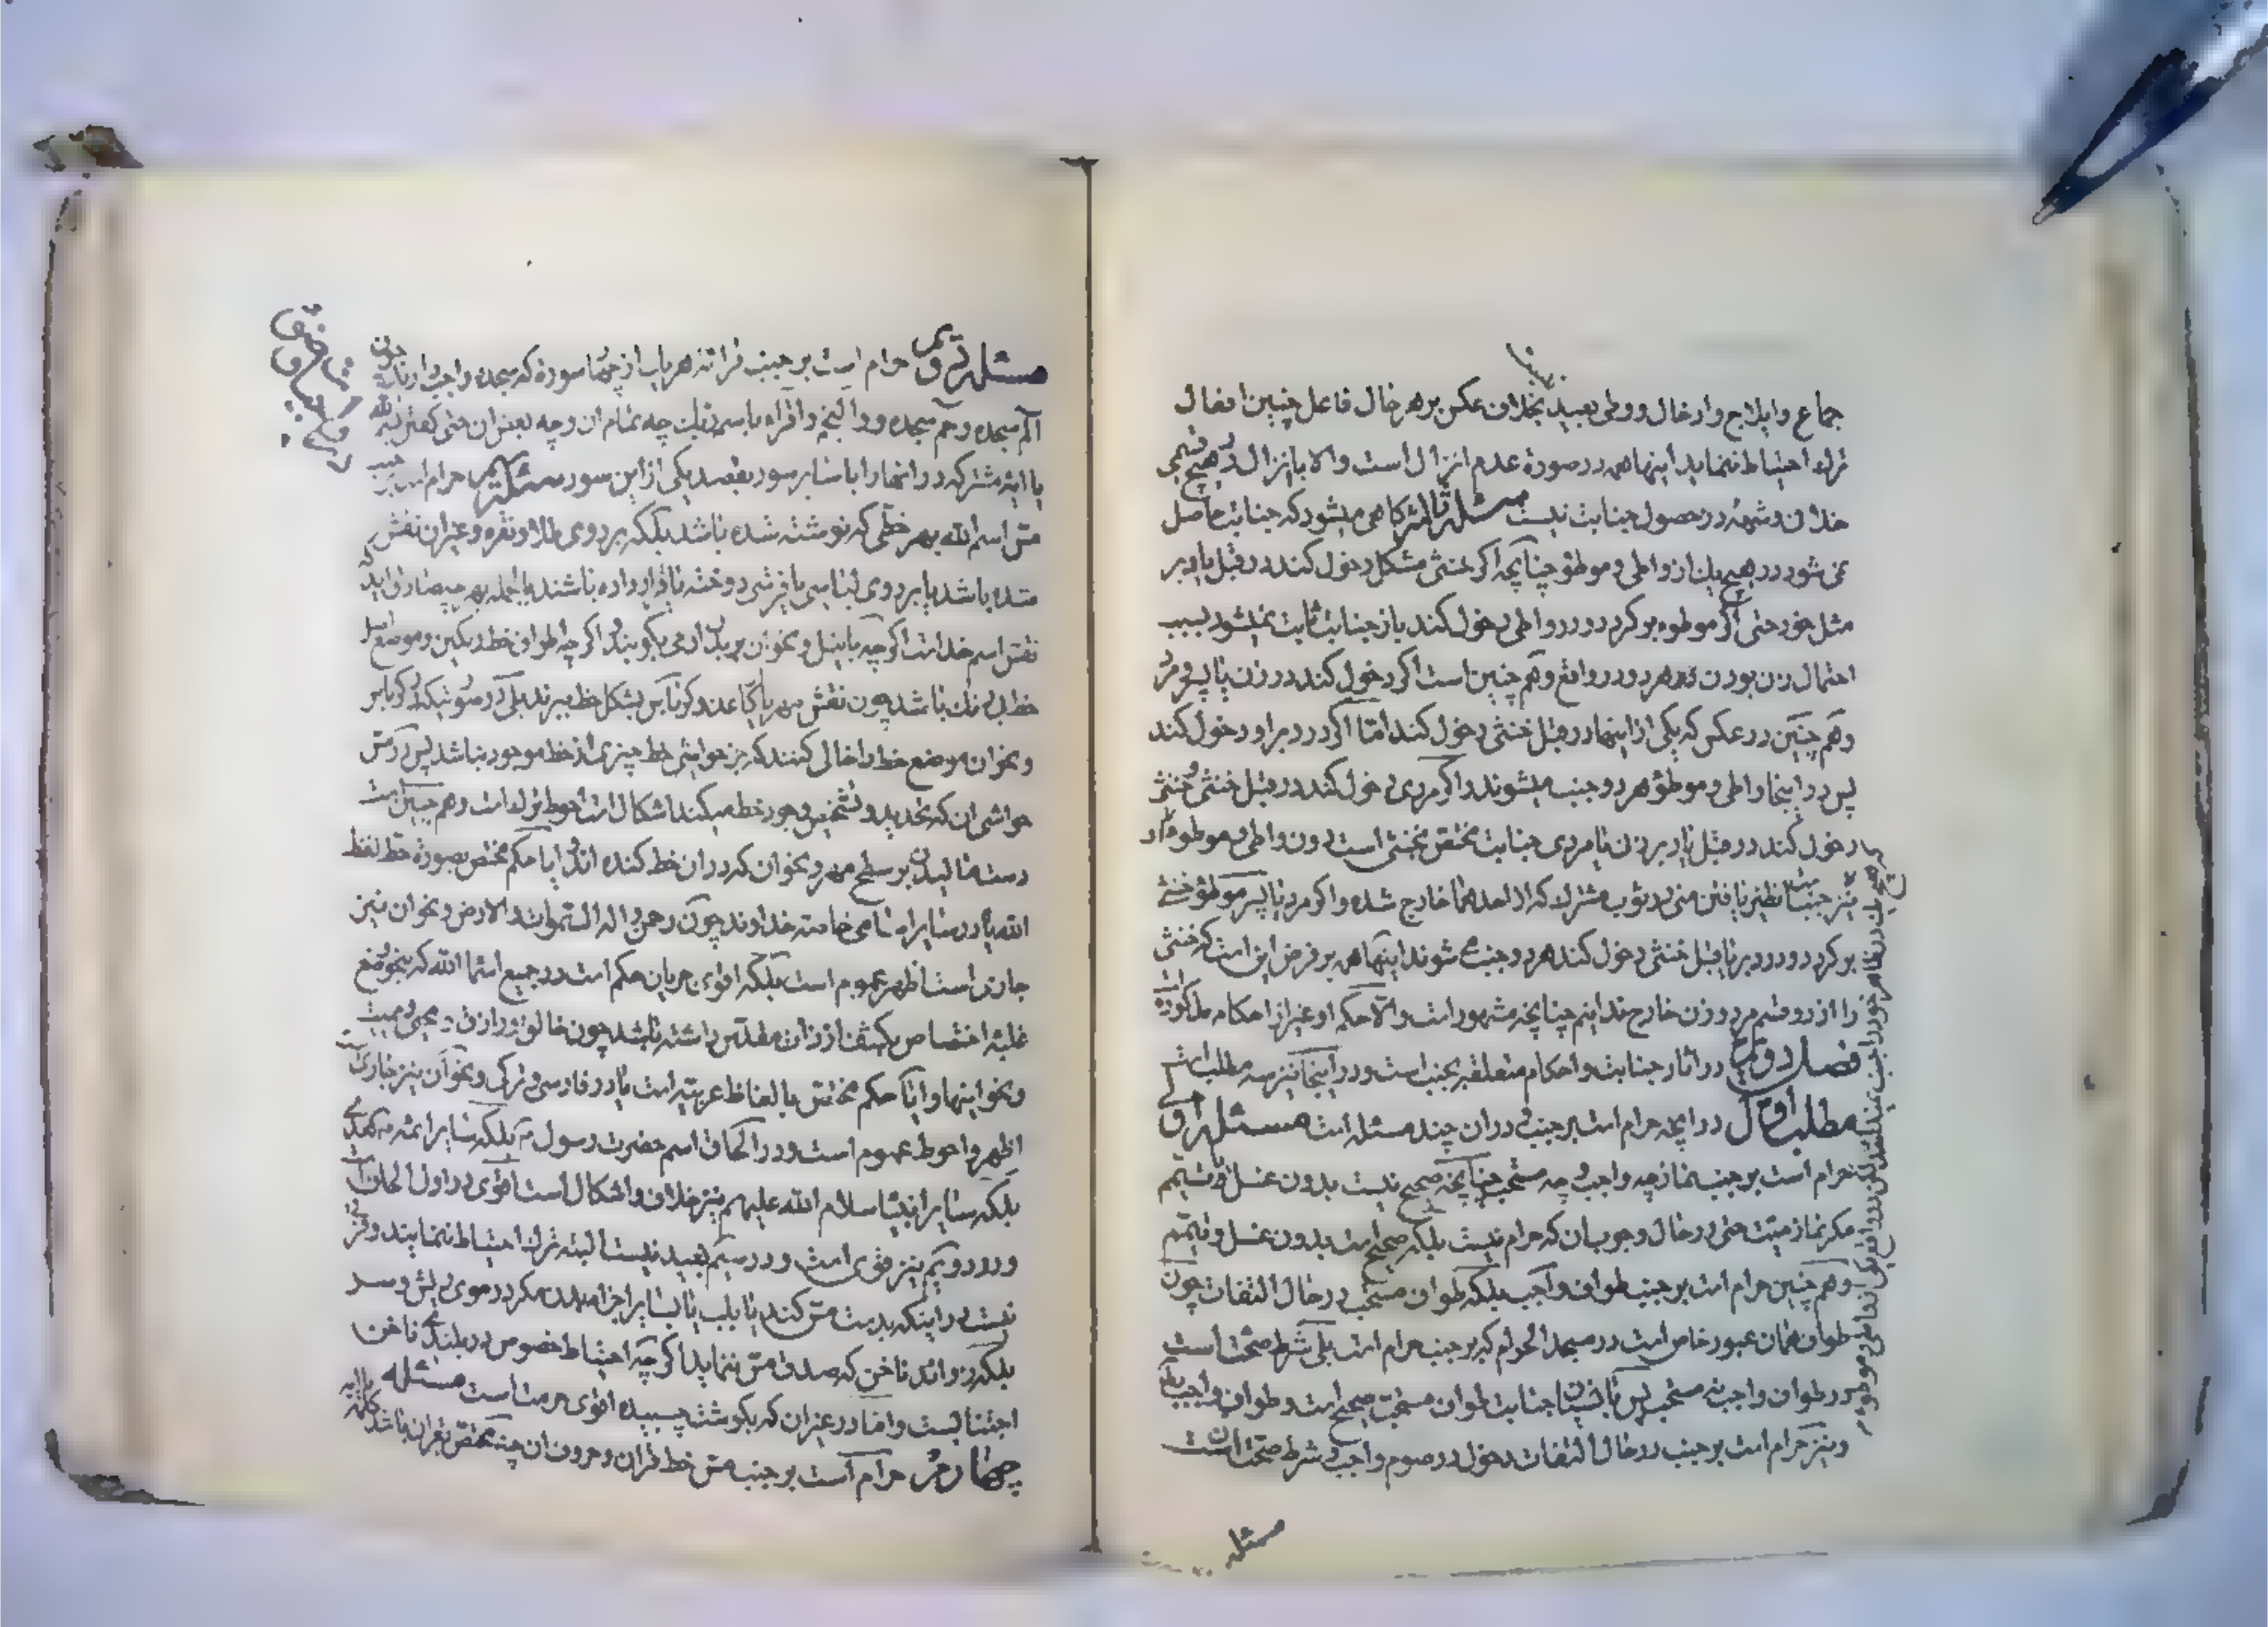 جماع و ایلاج و ادخال و وطی بعید بخلاف عکس بر هر حال فاعل چنین افعال
ترک احتیاط ننماید اینها همه در صورة عدم انزال است والا با انزال در هیچ قسمی
خلاف و شبهه در حصول جنابت نیست مسئله ثالثه گاهی میشود که جنابت حاصل
نمی شود در هیچ یک از واطی و موطؤ چنانچه اگر خنثی مشکل دخول کند در قبل یا دبر
مثل خود حتی اگر موطوء بر گردد و در واطی دخول کند باز جنابت ثابت نمیشود بسبب
احتمال زن بودن هر دو در واقع و هم چنین است اگر دخول کند در زن یا پسر و مرد
و هم چنین در عکس که یکی از اینها در قبل خنثی دخول کند امّا اگر در دبر او دخول کند
پس در اینجا واطی و موطؤ هر دو جنب میشوند و اگر مردی دخول کند در قبل خنثی و خنثی
دخول کند در قبل یا دبر زن یا مردی جنابت مختص بخنثی است دون واطی و موطوء
نیز جنب نظیر یافتن منی در ثوب مشترک که از احدهما خارج شده و اگر مرد یا پسر موطؤ خنثی
بر گردد و در دبر یا قبل خنثی دخول کند هر دو جنب می شوند اینها همه بر فرض این است که خنثی
را از دو قسم مرد و زن خارج ندانیم چنانچه مشهور است والّا حکم او غیر از احکام مذکوره است
فصل دویم در اثار جنابت و احکام متعلقه بجنب است و در اینجا نیز سه مطلب است
مطلب اول در انچه حرام است بر جنب و در ان چند مسئله است مسئله اول
حرام است بر جنب نماز چه واجب و چه مستحب چنانچه صحیح نیست بدون غسل و تیمم
مگر نماز میت حتی در حال وجوب ان که حرام نیست بلکه صحیح است بدون غسل و تیمم
و هم چنین حرام است بر جنب طواف واجب بلکه طواف مستحب در حال التفات چون
طواف همان عبور خاص است در مسجد الحرام که بر جنب حرام است بلی شرط صحت است
در طواف واجب نه مستحب پس با نسیان جنابت طواف مستحب صحیح است و طواف واجب باطل
و نیز حرام است بر جنب در حال التفات دخول در صوم واجب و شرط صحت ان است
مسئله
مسئله دویم حرام است بر جنب قرائة هر یک از چهار سورة که سجده واجب دارند چون
الم سجده و حم سجده و والنجم و اقراء باسم ربک چه تمام ان و چه بعض ان حتی گفتن بسم الله
یا ایه مشترکه در انها را با سایر سور بقصد یکی از این سور مسئله سیم حرام است بر جنب
مس اسم الله بهر خطی که نوشته شده باشد بلکه بر روی طلا و نقره و غیر ان نقش
شده باشد یا بر روی لباسی یا فرشی دوخته یا قرار داده باشند بالجمله بهر چه صادق اید که
نقش اسم خدا است اگر چه با نیل و نحو ان بر بدن ادمی بکوبند و اگر چه اطراف خط رنگین و موضع اصل
خط بی رنگ باشد چون نقش مهر یا کاغذ و کرباس بشکل خط ببرند بلی در صورتیکه کرباس
و نحو ان موضع خط را خالی کنند که جز حواشی خط چیزی از خط موجود نباشد پس در مس
حواشی ان که تحدید و تشخیص وجود خط میکند اشکال است احوط ترک است و هم چنین است
دست مالیدن بر سطح مهر و نحو ان که در ان خط کنده اند و ایا حکم مختص بصورة خط لفظ
الله یا در سایر اسامی خاصه خداوند چون رحمن و اله السموات والارض و نحو ان نیز
جاری است اظهر عموم است بلکه اقوی جریان حکم است در جمیع اسما الله که بنحو وضع
غلبه اختصاص بکشف از ذات مقدّس داشته باشد چون خالق و رازق و محیی و ممیت
و نحو اینها و ایا حکم مختص بالفاظ عربیّه است یا در فارسی و ترکی و نحو ان نیز جاری است
اظهر و احوط عموم است و در الحاق اسم حضرت رسول ص بلکه سایر ائمه هدی
بلکه سایر انبیا سلام الله علیهم نیز خلاف و اشکال است اقوی در اول الحاق است
و در دویم نیز قوی است و در سیم بعید نیست البته ترک احتیاط ننمایند و فرقی
نیست در اینکه بدست مس کند یا بلب یا بسایر اجزاء بدن مگر در موی ریش و سر
بلکه زوائد ناخن که صدق مس ننماید اگر چه احتیاط خصوص در بلندی ناخن
اجتنابست و امّا در غیر ان که بگوشت چسبیده اقوی حرمت است مسئله
چهارم حرام است بر جنب مس خط قران و حروف ان چه مختص بقران باشد